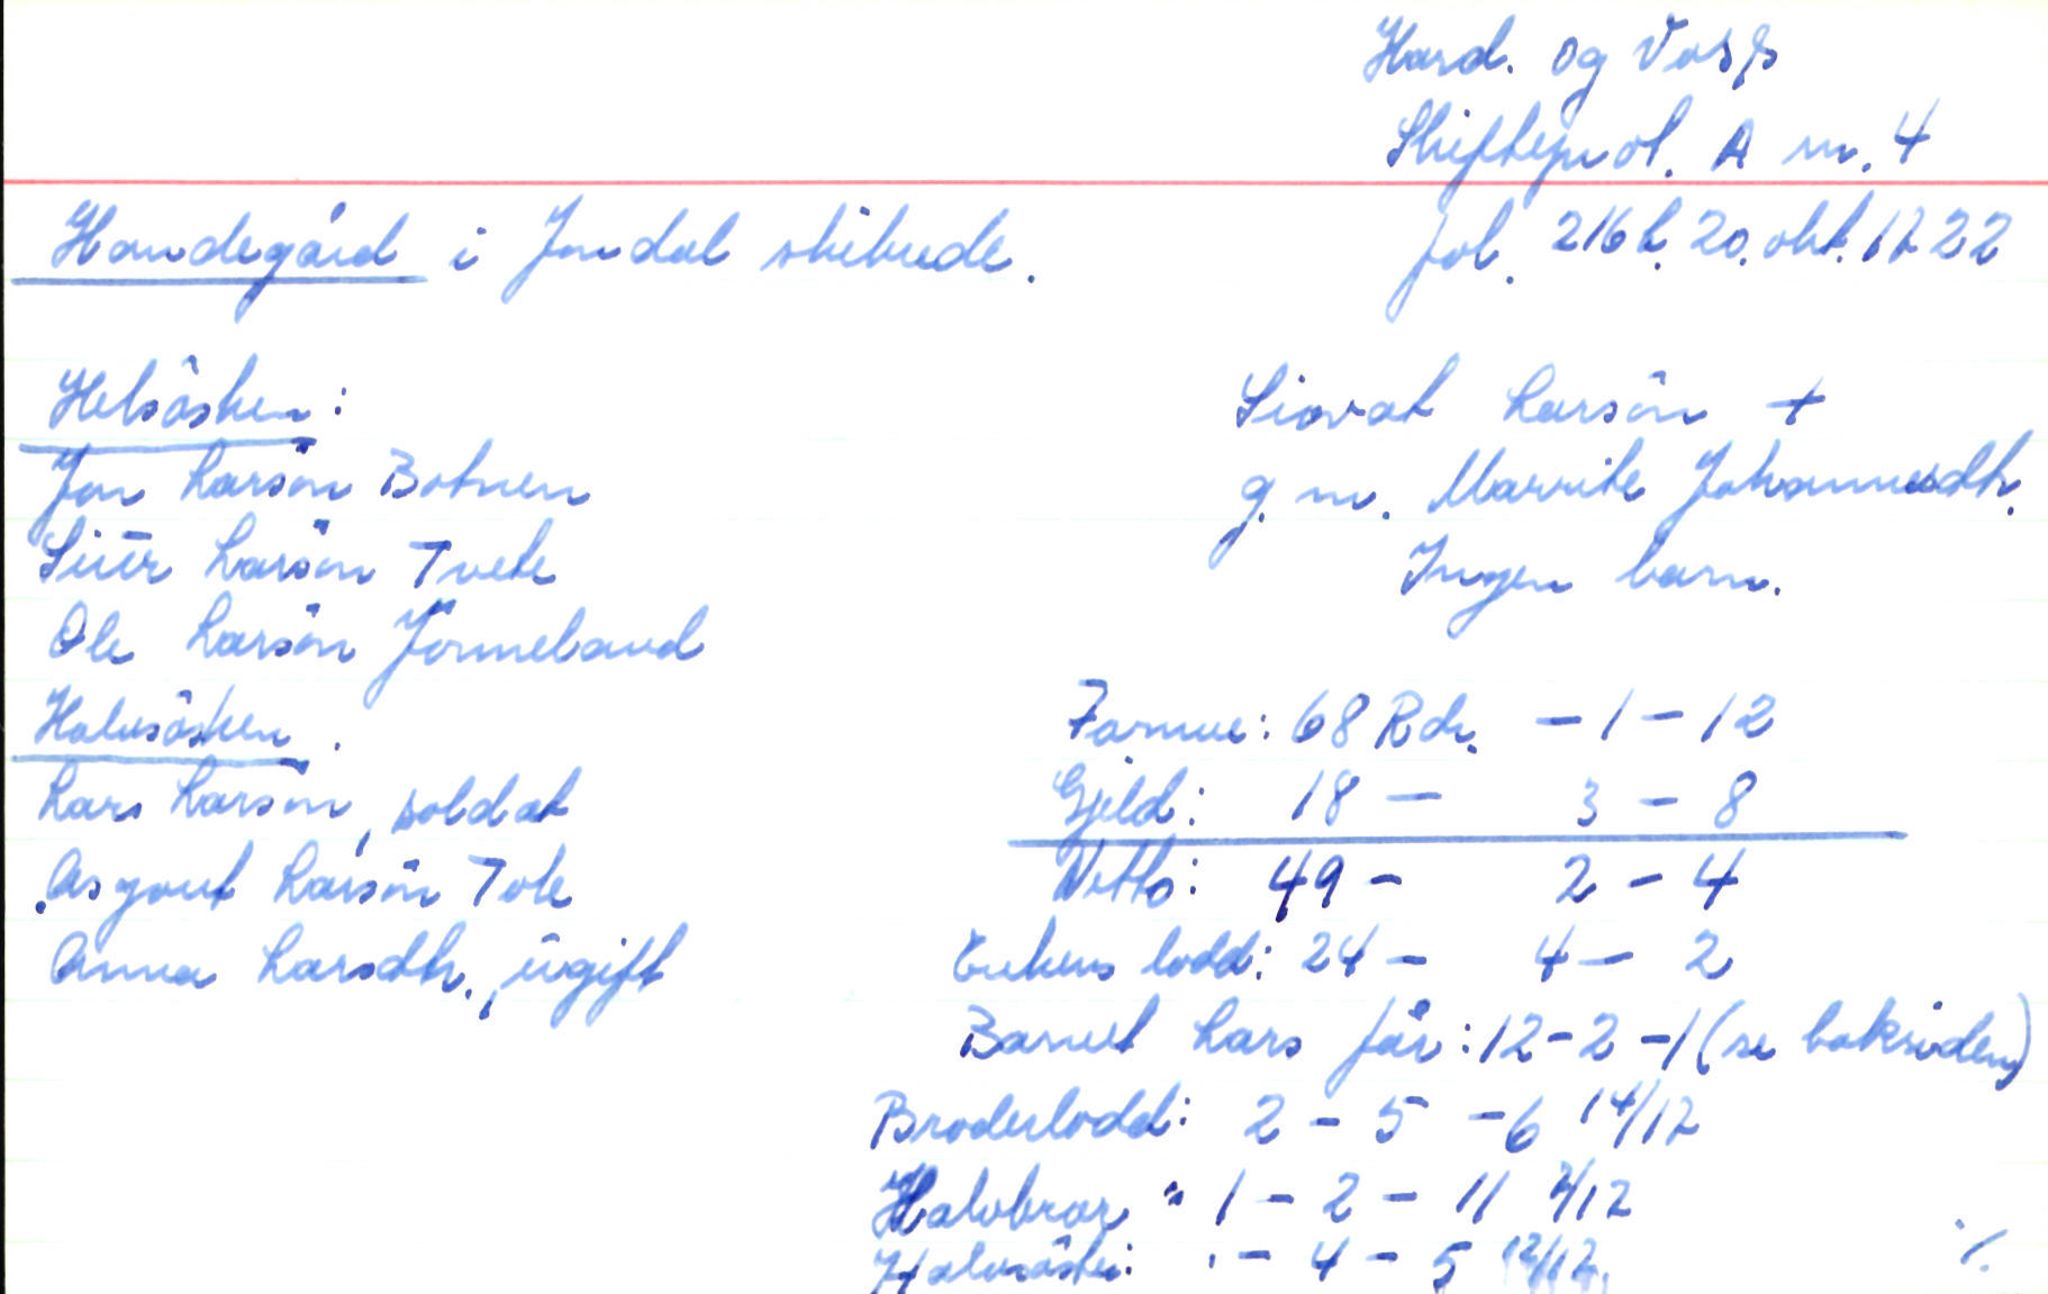 Hard. og Voss
Skifteprot. A nr. 4
Handegård i Jondal skibrede.
fol. 216 b. 20. okt. 1722
Helsösken:
Jon Larsön Botnen
Siur Larsön Tvete
Ole Larsön Jonneland
Halvsösken.
Lars Larsön, soldat
Asgout Larsön Tole
Anna Larsdtr., ugift
Siovat Larsön +
g. m. Marrite Johannesdtr.
Ingen barn.
Formue: 68 Rdr. - 1 - 12
Gjeld: 18 - 3 - 8
Netto: 49 - 2 - 4
Enkens lodd: 24 - 4 - 2
Barnet Lars får: 12 - 2 - 1 (se baksiden)
Broderlodd: 2 - 5 - 6 14/17
Halvbror " 1 - 2 - 11
Halvsöster: - 4 - 5
./.